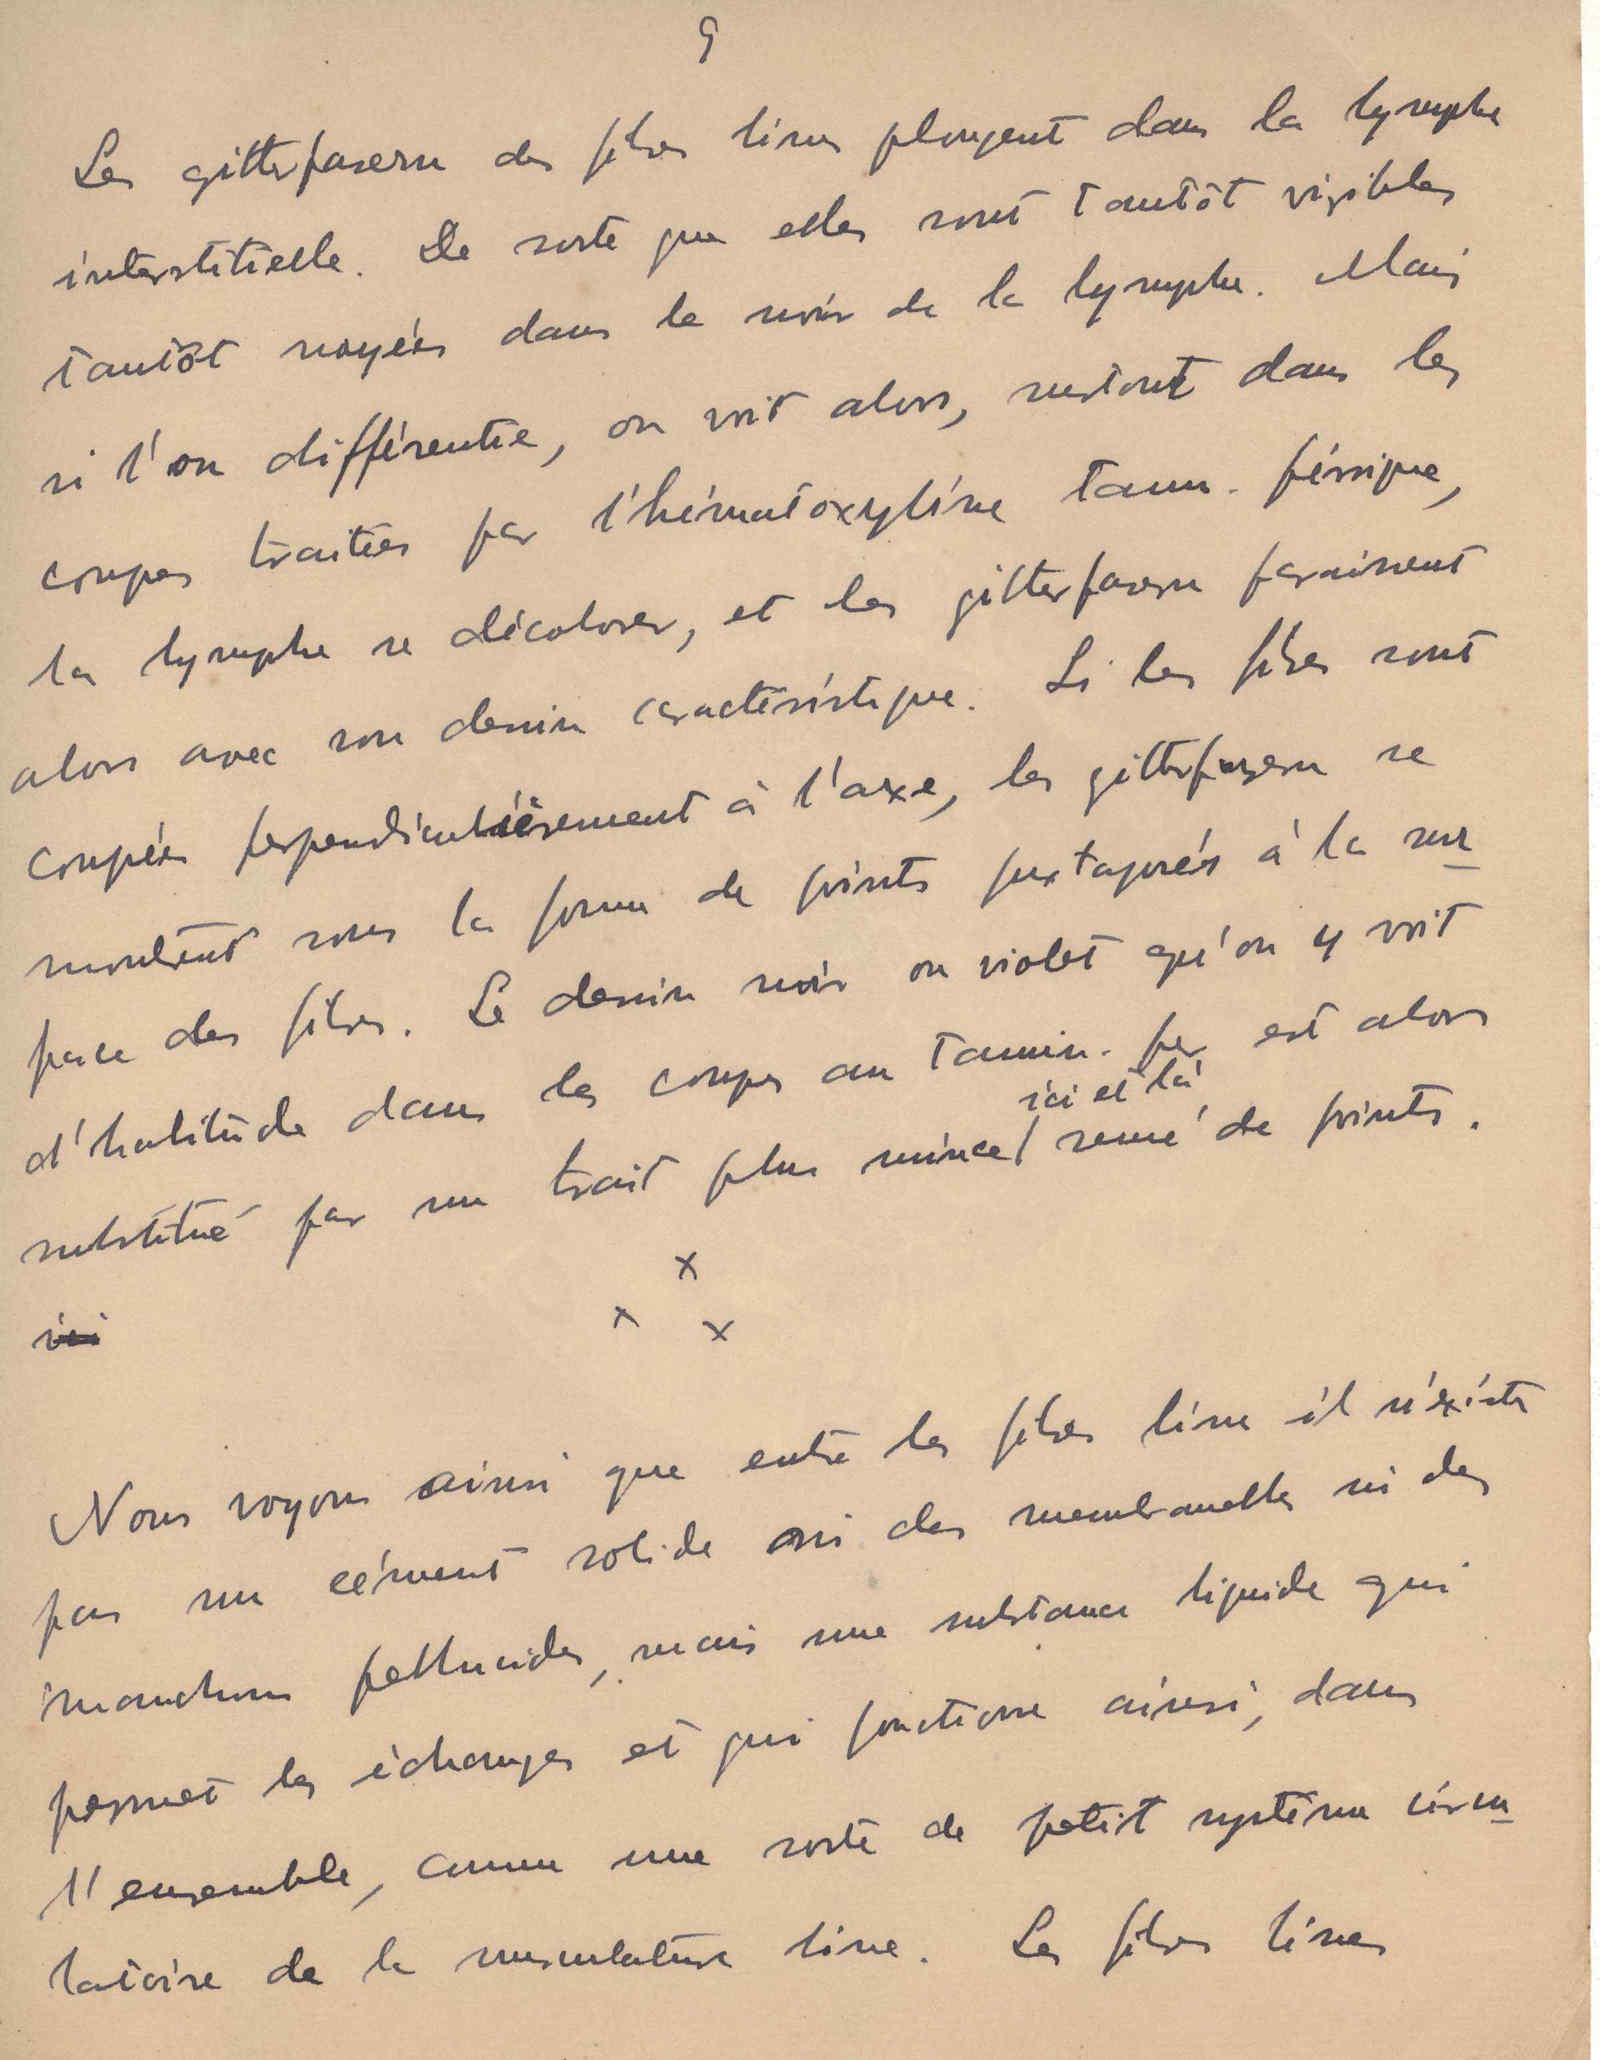 9
Les gitterfasern des fibres lisses plongent dans la lymphe
interstitielle. De sorte que elles sont tantôt visibles
tantôt noyées dans le noir de la lymphe. Mais
si l'on différentie, on voit alors, surtout dans les
coupes traitées par l'hématoxyline tann-férrique,
la lymphe se décolorer, et les gitterfasern paraissent
alors avec son dessin caractéristique. Si les fibres sont
coupées perpendiculièrement à l'axe, les gitterfasern se
montrent sous la forme de points juxtaposés à la sur
face des fibres. Le dessin noir ou violet qu'on y voit
d'habitude dans les coupes au tannin-fer est alors
substitué par un trait plus mince ici et là semé de points.
ici
x
x x
Nous voyons ainsi que entre les fibres lisses il n'existe
pas un cément solide ni des membranelles ni des
manchons pellucides, mais une substance liquide qui
permet les échanges et qui fonctionne ainsi, dans
l'ensemble, comme une sorte de petit système circu
latoire de la musculature lisse. Les fibres lisses